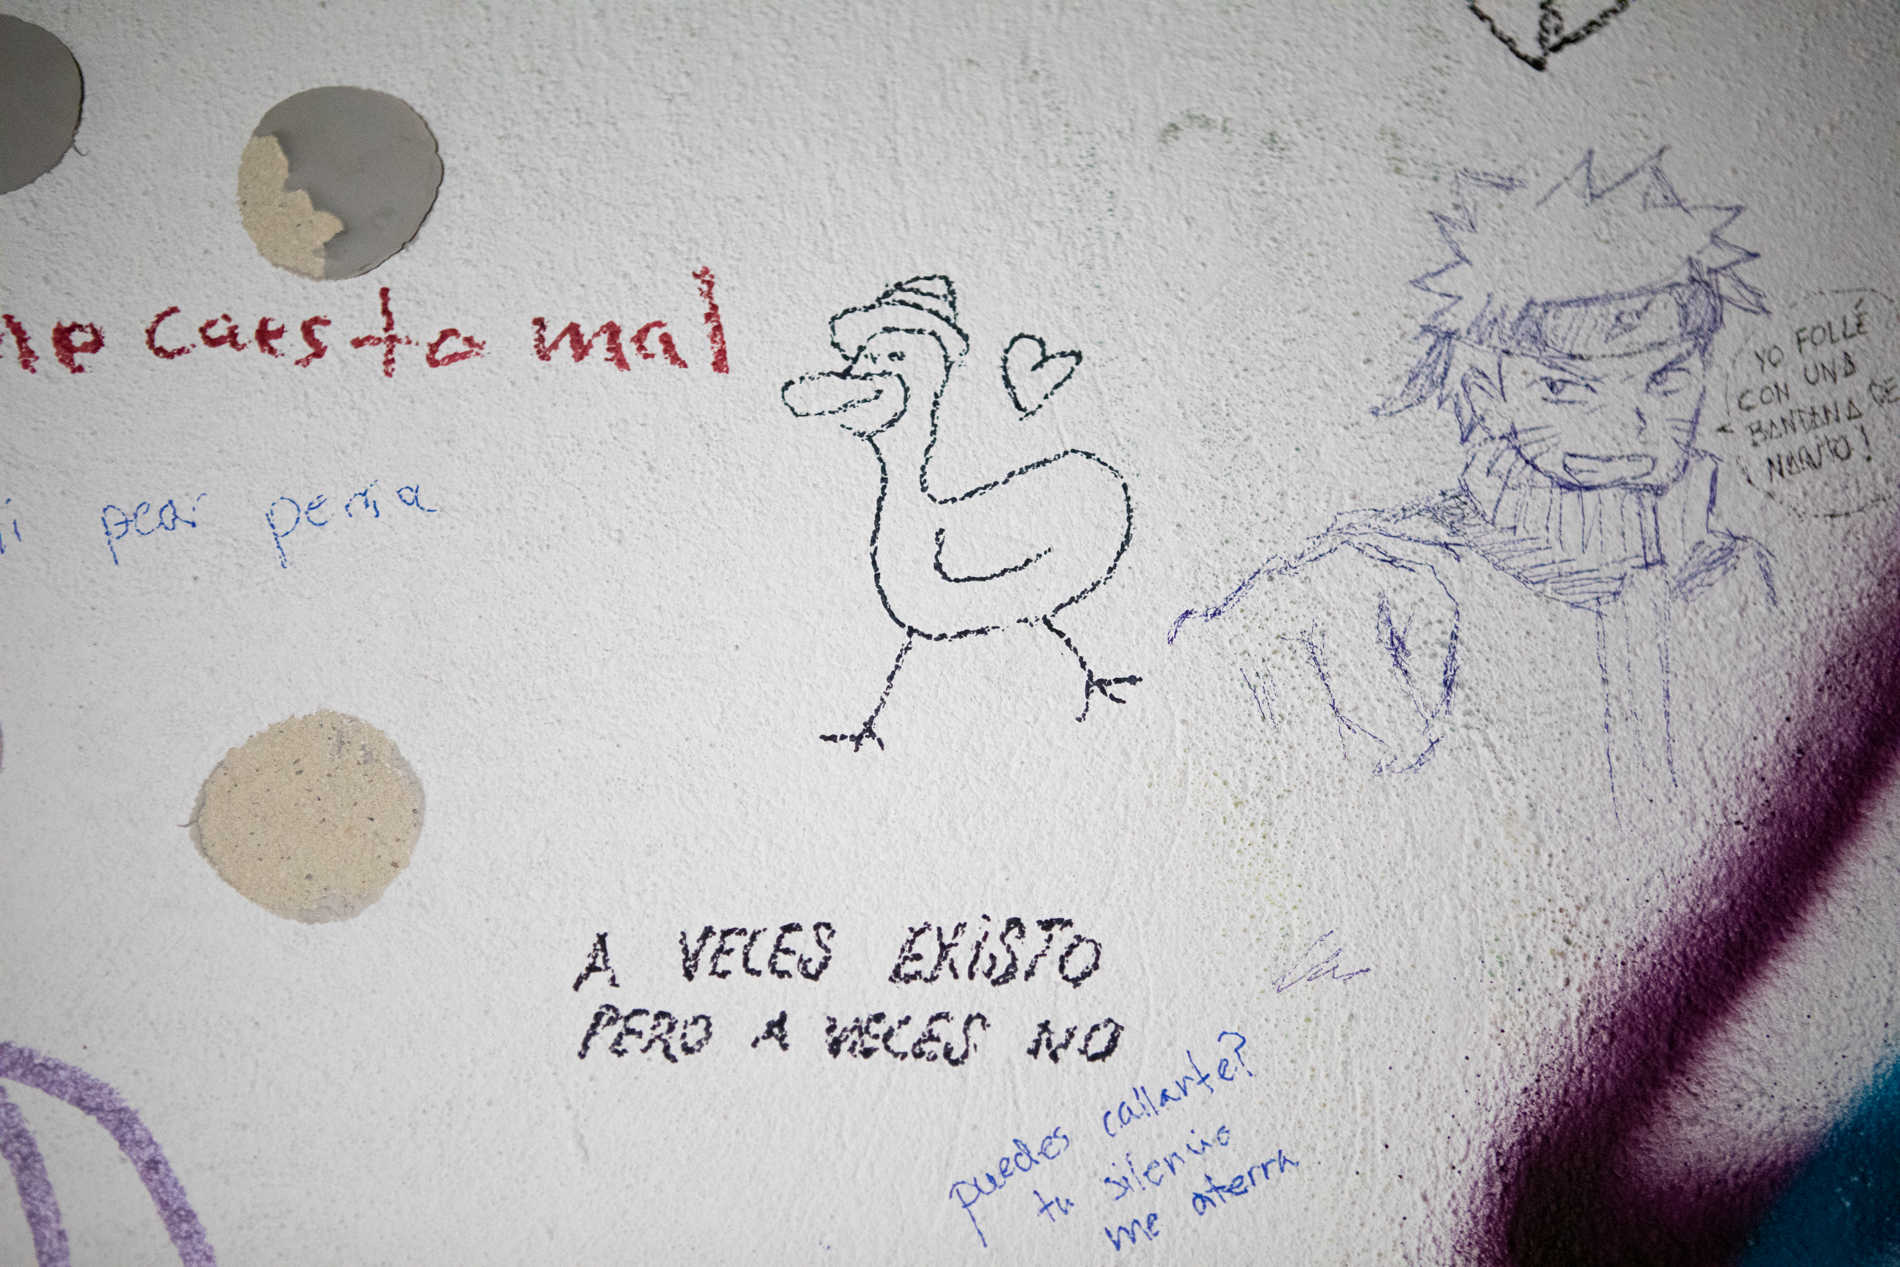 no caes to mal
pear perra
YO FOLLÉ
CON UNA
BANDANA DE
NARUTO!
A VECES EXISTO
PERO A VECES NO
puedes callarte?
tu silencio
me aterra